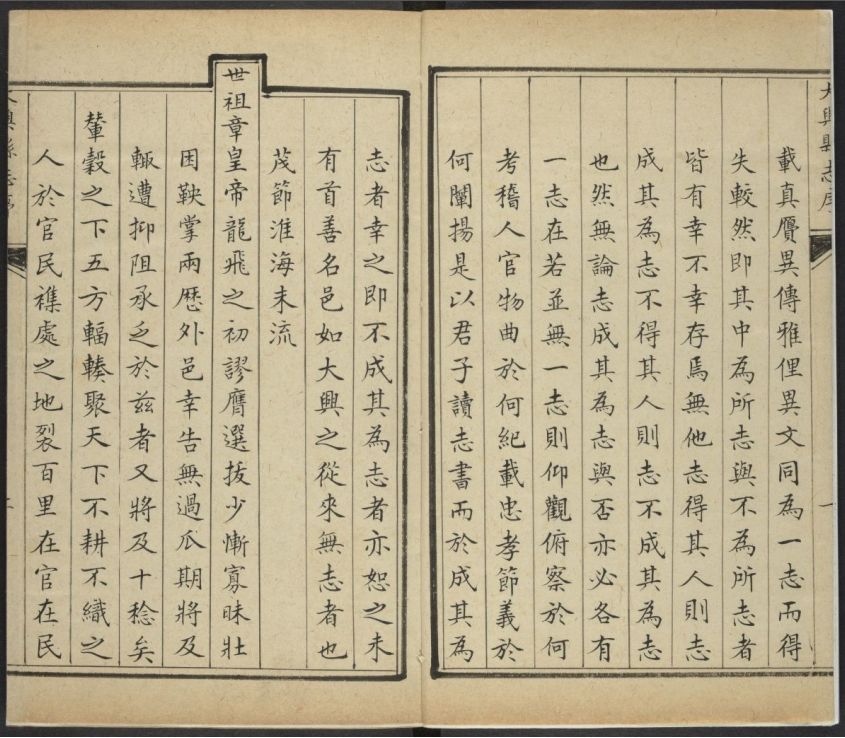 大興縣志序
一
載真贋異傳雅俚異文同為一志而得
失較然即其中為所志與不為所志者
皆有幸不幸存焉無他志得其人則志
成其為志不得其人則志不成其為志
也然無論志成其為志與否亦必各有
一志在若並無一志則仰觀俯察於何
考稽人官物曲於何紀載忠孝節義於
何闡揚是以君子讀志書而於成其為
志者幸之即不成其為志者亦恕之未
有首善名邑如大興之從來無志者也
茂節淮海末流
世祖章皇帝龍飛之初謬膺選拔少慚寡昧壯
困鞅掌兩歷外邑幸告無過瓜期將及
輙遭抑阻承乏於茲者又將及十稔矣
輦轂之下五方輻輳聚天下不耕不織之
人於官民襍處之地裂百里在官在民
大興縣志序